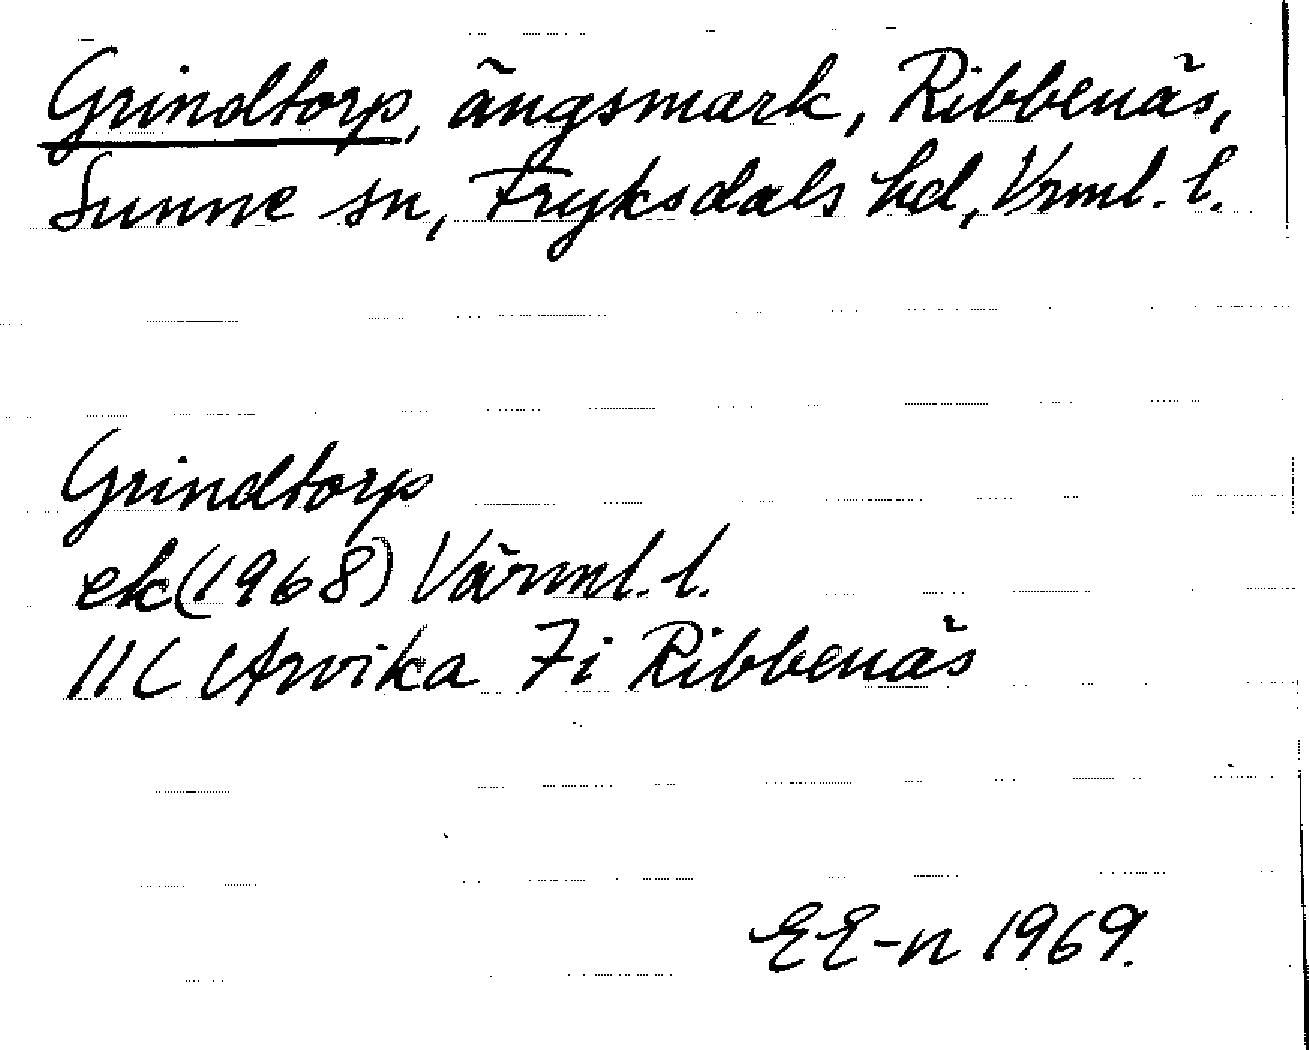 Grindtorp, ängsmark, Ribbenäs,
Sunne sn, Fryksdals hd, Vrml. l.
Grindtorp
ek(1968) Värml. l.
11C Arvika 7i Ribbenäs
EE-n 1969.